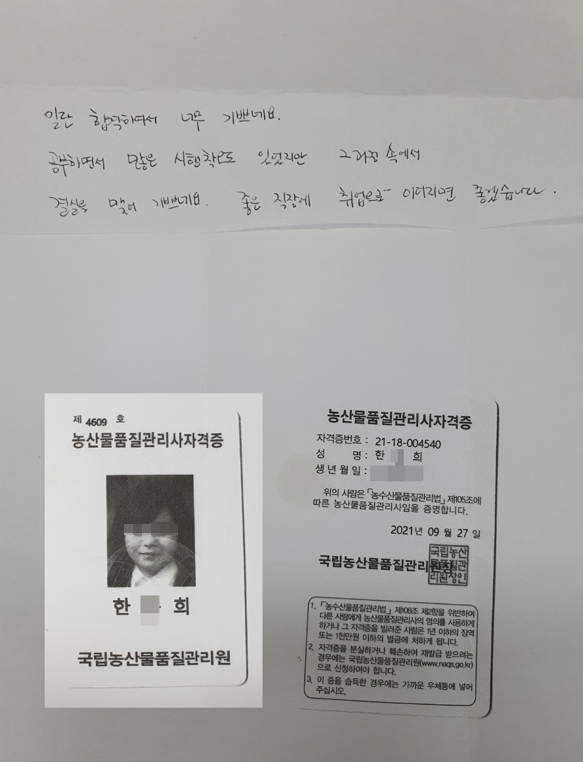 일단 합격하면서 너무 기쁘네요.
공부하면서 많은 시행착오도 있었지만 그 과정 속에서
결실을 맺어 기쁘네요. 좋은 직장에 취업으로 이어지면 좋겠습니다.
제 4609 호
농산물품질관리사자격증
한 희
국립농산물품질관리원
농산물품질관리사자격증
자격증번호 : 21-18-004540
성 명 : 한 희
생년월일 :
위의 사람은 「농수산물품질관리법」 제105조에
따른 농산물품질관리사임을 증명합니다.
2021년 09 월 27 일
국립농산물품질관리원장
국립농산
물품질관
리원장인
1. 「농수산물품질관리법」 제108조 제2항을 위반하여
다른 사람에게 농산물품질관리사의 명의를 사용하게
하거나 그 자격증을 빌려준 사람은 1년 이하의 징역
또는 1천만원 이하의 벌금에 처하게 됩니다.
2. 자격증을 분실하거나 훼손하여 재발급 받으려는
경우에는 국립농산물품질관리원(www.naqs.go.kr)
으로 신청하여야 합니다.
3. 이 증을 습득한 경우에는 가까운 우체통에 넣어
주십시오.